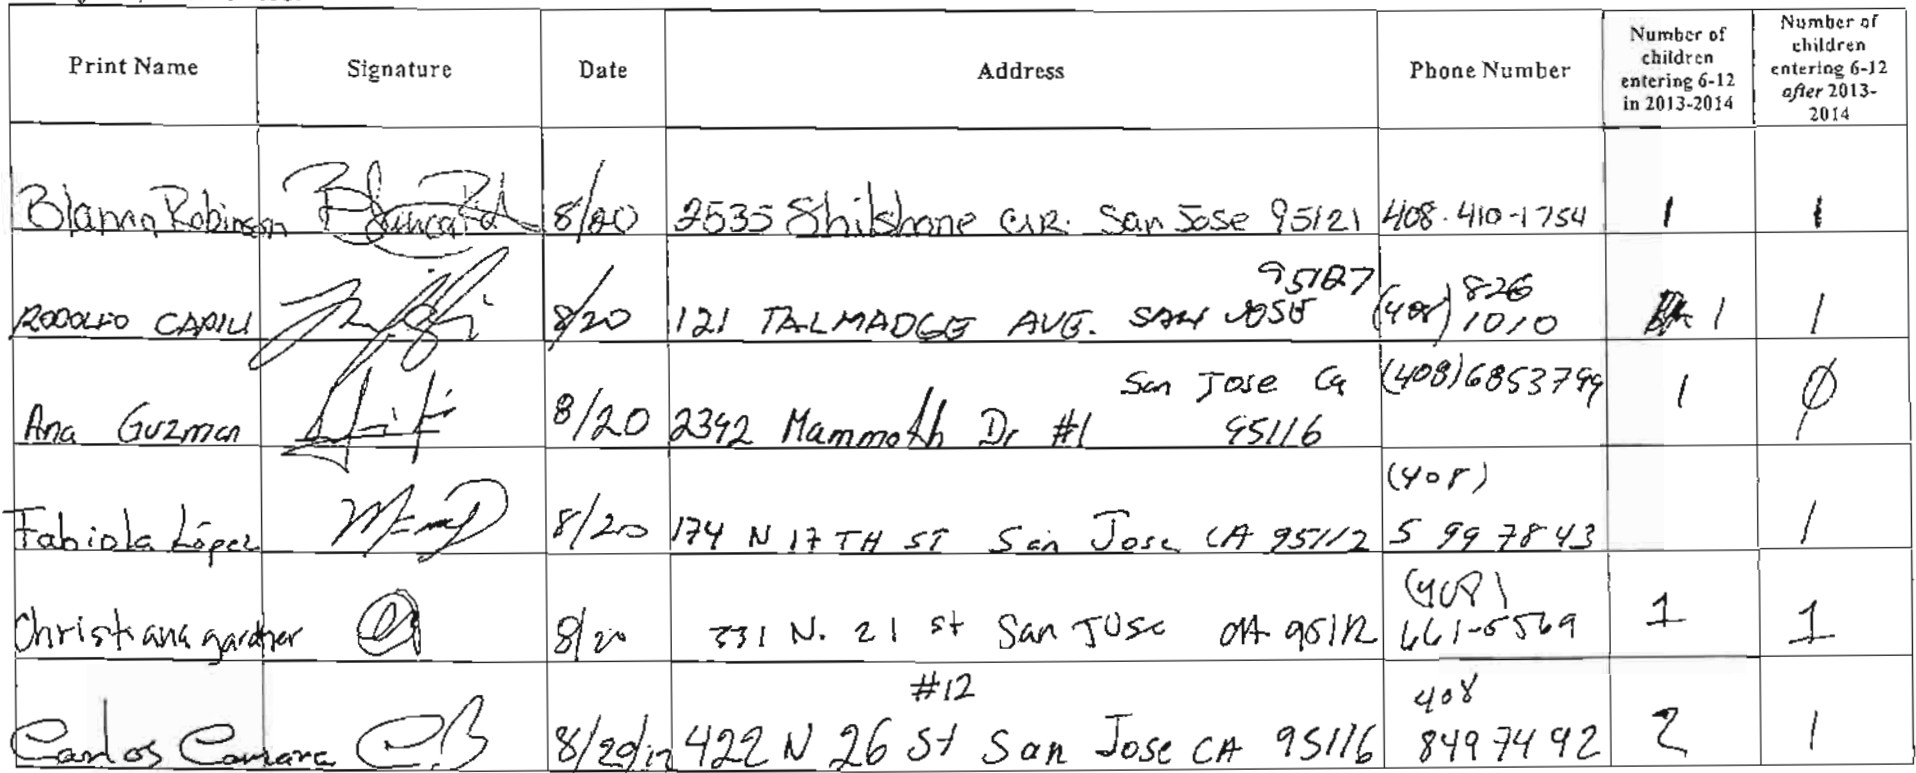 Print Name Signature Date Address Phone Number Number of children entering 6-12 in 2013-2014 Number of children entering 6-12 after 2013-2014
Robinson 8/20 2535 Shilshone CIR. San Jose 95121 408-410-1754 1 1
RODOLFO CAPILI 8/20 121 TALMADGE AVE. SAN JOSE 95127 (408) 826 1010 1 1
Ana Guzman 8/20 2392 Mammoth Dr #1 San Jose Ca 95116 (408)6853799 1 0
Fabiola López 8/20 174 N 17 TH ST San Jose CA 95112 (408) 5 99 78 43 1
Christiana gardner 8/20 331 N. 21 st San Jose CA 95112 (408) 661-5569 1 1
Carlos 8/20/12 422 N 26 St #12 San Jose CA 95116 408 849 74 92 2 1